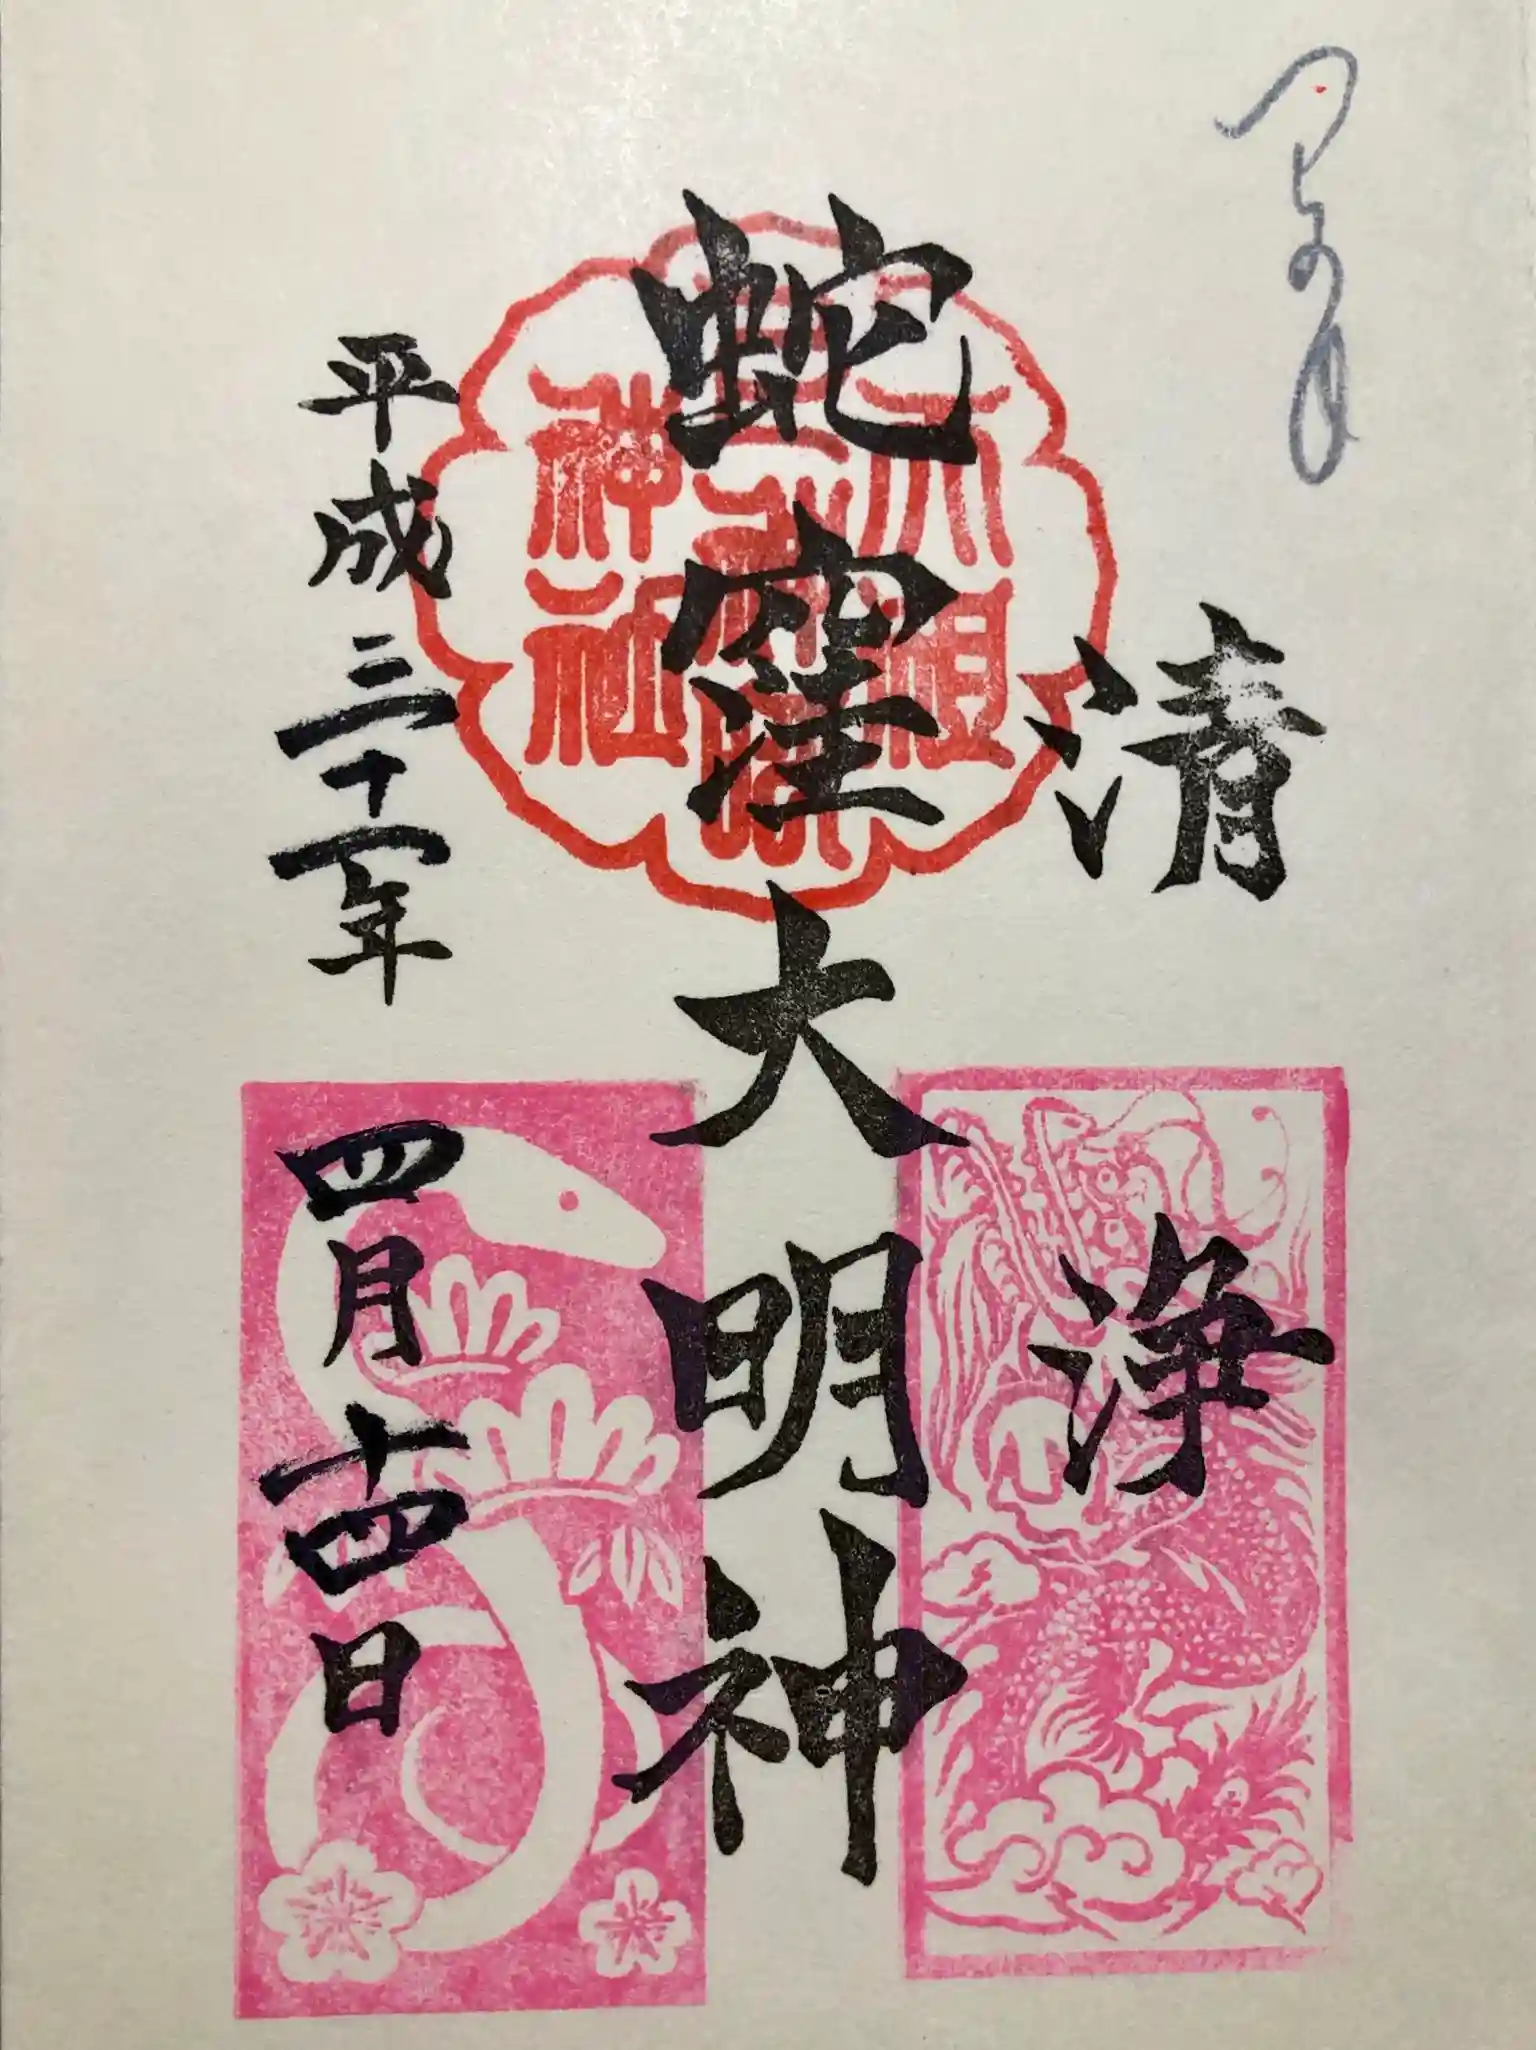 清浄
蛇窪大明神
平成三十一年 四月十四日
上神明
天祖
神社